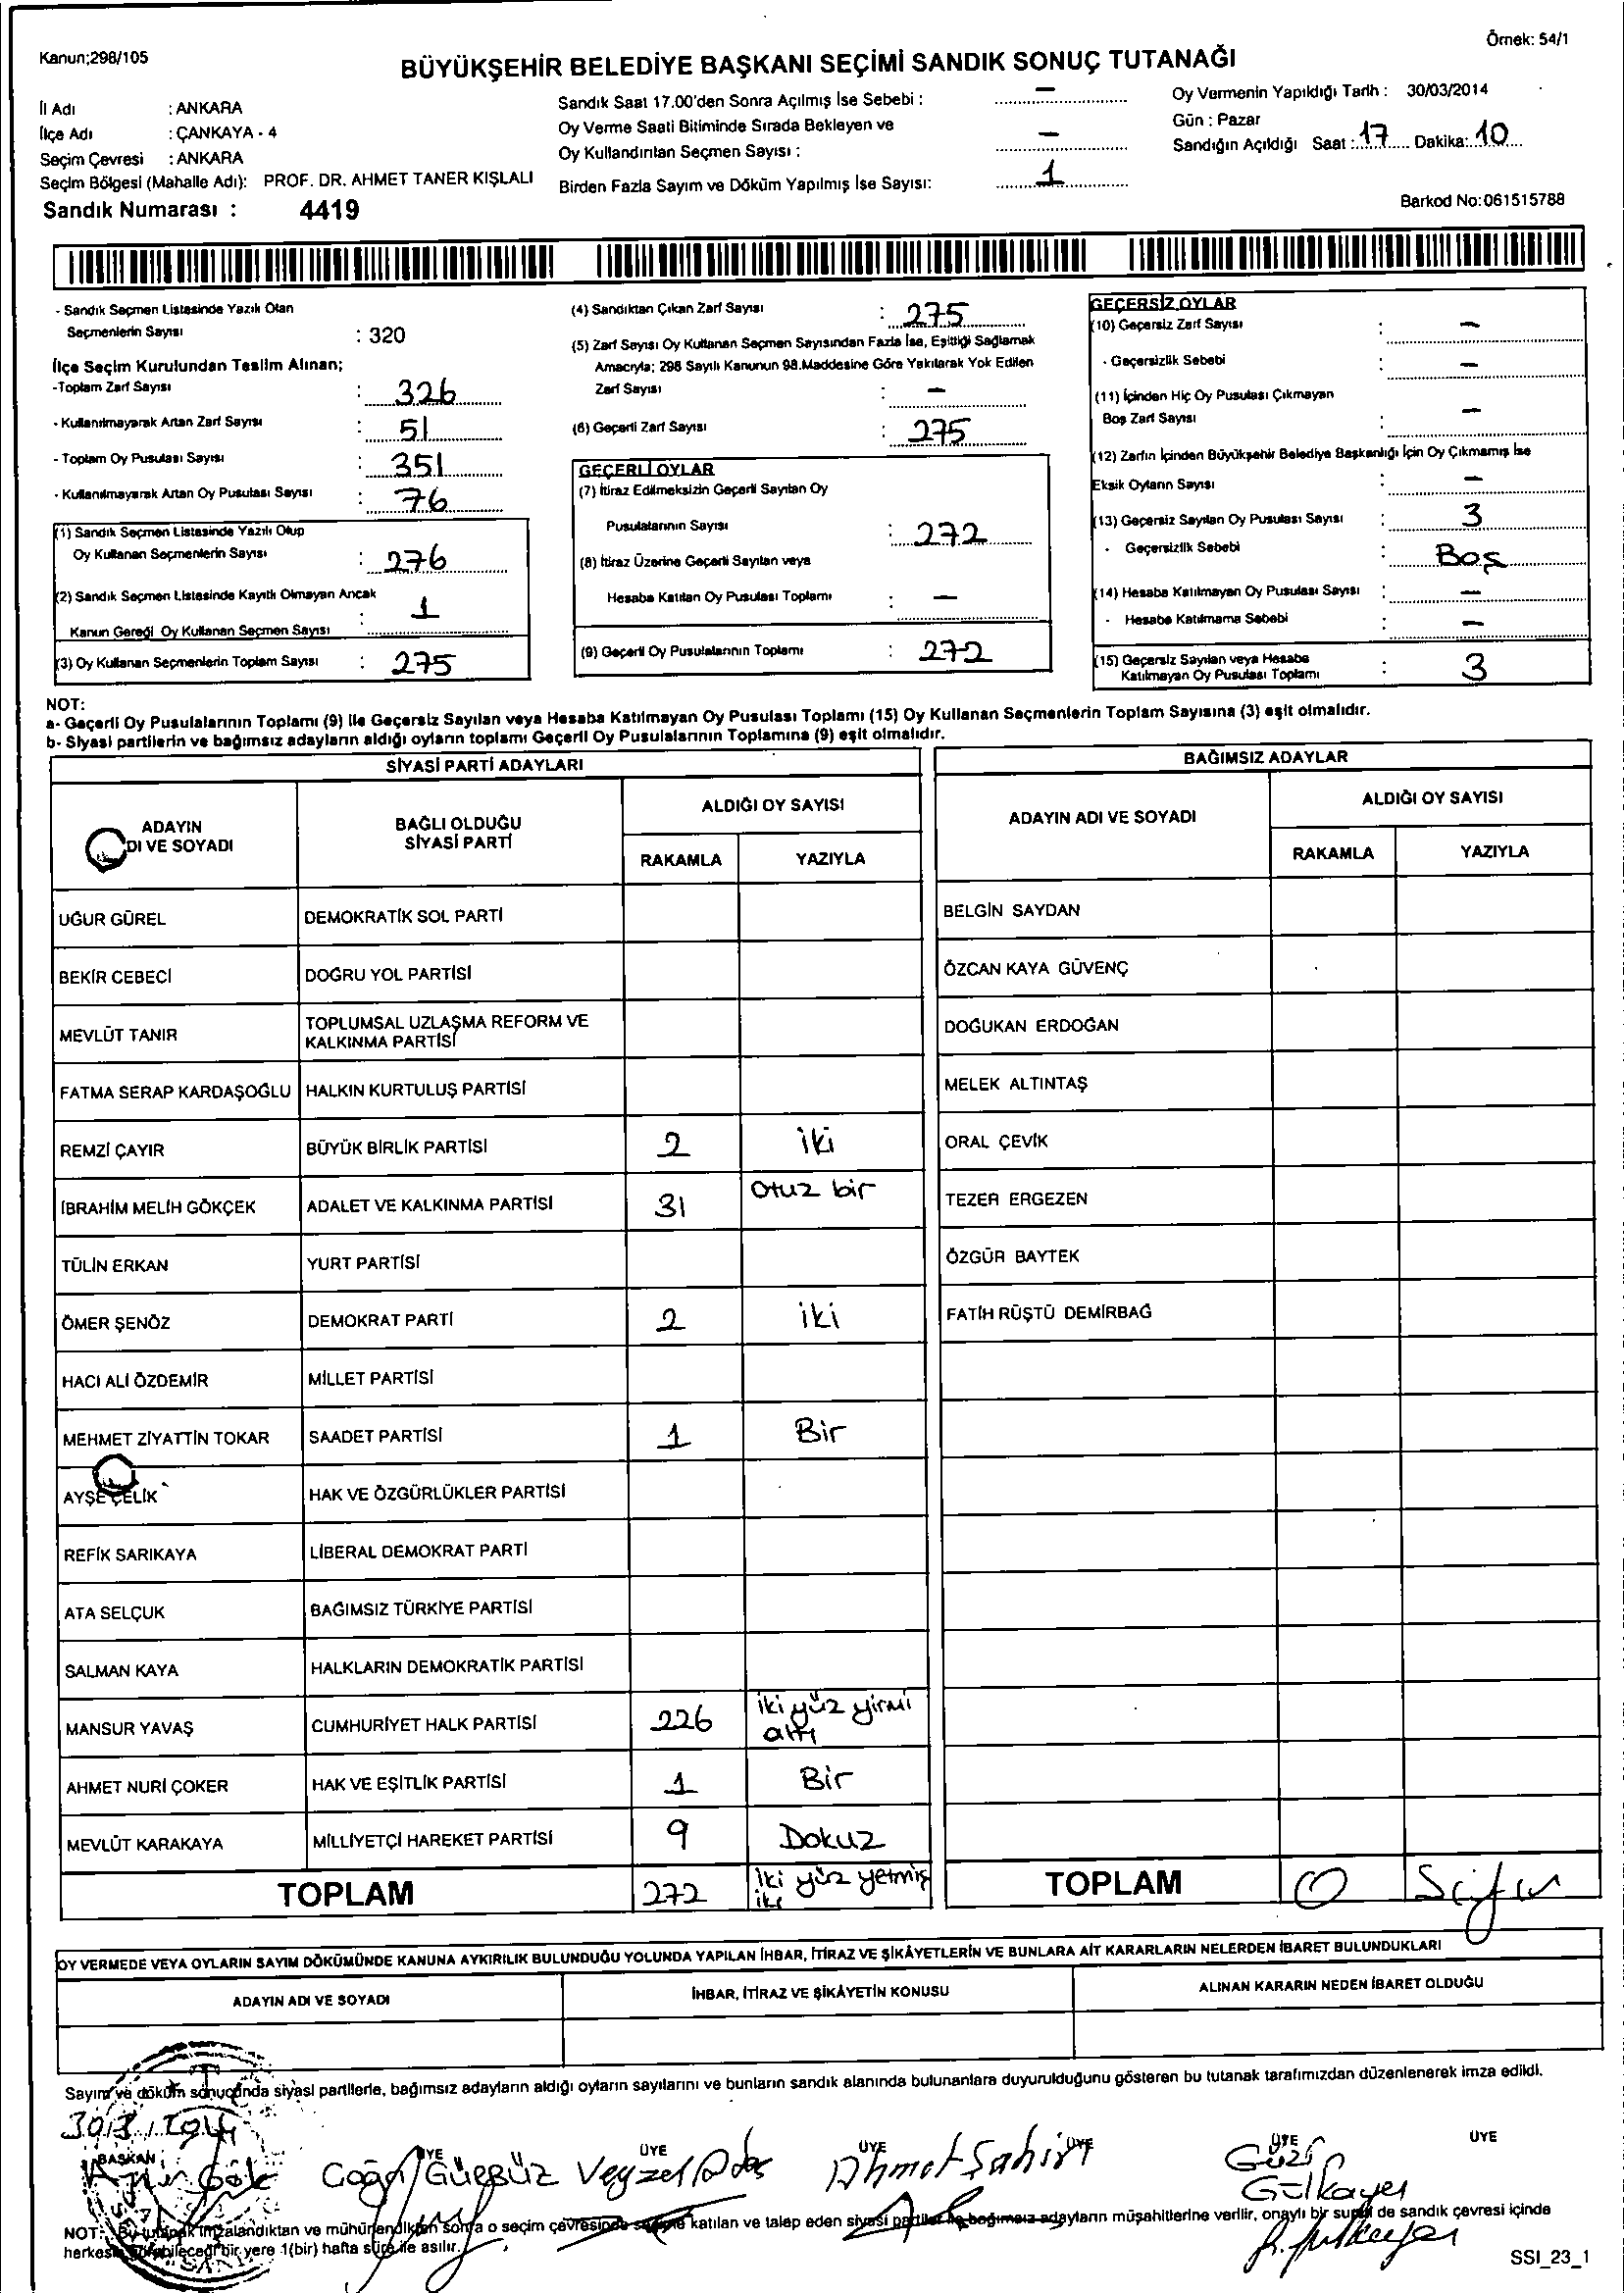 Kanun;298/105
Örnek: 54/1
BÜYÜKŞEHİR BELEDİYE BAŞKANI SEÇİMİ SANDIK SONUÇ TUTANAĞI
İl Adı : ANKARA
İlçe Adı : ÇANKAYA - 4
Seçim Çevresi : ANKARA
Seçim Bölgesi (Mahalle Adı): PROF. DR. AHMET TANER KIŞLALI
Sandık Numarası : 4419
Sandık Saat 17.00'den Sonra Açılmış İse Sebebi : –
Oy Verme Saati Bitiminde Sırada Bekleyen ve
Oy Kullandırılan Seçmen Sayısı : –
Birden Fazla Sayım ve Döküm Yapılmış İse Sayısı: 1
Oy Vermenin Yapıldığı Tarih : 30/03/2014
Gün : Pazar
Sandığın Açıldığı Saat : 17 Dakika: 10
Barkod No:061515788
- Sandık Seçmen Listesinde Yazılı Olan
Seçmenlerin Sayısı : 320
İlçe Seçim Kurulundan Teslim Alınan;
-Toplam Zarf Sayısı : 326
- Kullanılmayarak Artan Zarf Sayısı : 51
- Toplam Oy Pusulası Sayısı : 351
- Kullanılmayarak Artan Oy Pusulası Sayısı : 76
(1) Sandık Seçmen Listesinde Yazılı Olup
Oy Kullanan Seçmenlerin Sayısı : 276
(2) Sandık Seçmen Listesinde Kayıtlı Olmayan Ancak
Kanun Gereği Oy Kullanan Seçmen Sayısı : 1
(3) Oy Kullanan Seçmenlerin Toplam Sayısı : 275
(4) Sandıktan Çıkan Zarf Sayısı : 275
(5) Zarf Sayısı Oy Kullanan Seçmen Sayısından Fazla İse, Eşitliği Sağlamak
Amacıyla; 298 Sayılı Kanunun 98.Maddesine Göre Yakılarak Yok Edilen
Zarf Sayısı : –
(6) Geçerli Zarf Sayısı : 275
GEÇERLİ OYLAR
(7) İtiraz Edilmeksizin Geçerli Sayılan Oy
Pusulalarının Sayısı : 272
(8) İtiraz Üzerine Geçerli Sayılan veya
Hesaba Katılan Oy Pusulası Toplamı : –
(9) Geçerli Oy Pusulalarının Toplamı : 272
GEÇERSİZ OYLAR
(10) Geçersiz Zarf Sayısı : –
- Geçersizlik Sebebi : –
(11) İçinden Hiç Oy Pusulası Çıkmayan
Boş Zarf Sayısı : –
(12) Zarfın İçinden Büyükşehir Belediye Başkanlığı İçin Oy Çıkmamış İse
Eksik Oyların Sayısı : –
(13) Geçersiz Sayılan Oy Pusulası Sayısı : 3
- Geçersizlik Sebebi : Boş
(14) Hesaba Katılmayan Oy Pusulası Sayısı : –
- Hesaba Katılmama Sebebi : –
(15) Geçersiz Sayılan veya Hesaba
Katılmayan Oy Pusulası Toplamı : 3
NOT:
a- Geçerli Oy Pusulalarının Toplamı (9) ile Geçersiz Sayılan veya Hesaba Katılmayan Oy Pusulası Toplamı (15) Oy Kullanan Seçmenlerin Toplam Sayısına (3) eşit olmalıdır.
b- Siyasi partilerin ve bağımsız adayların aldığı oyların toplamı Geçerli Oy Pusulalarının Toplamına (9) eşit olmalıdır.
SİYASİ PARTİ ADAYLARI
ADAYIN
DI VE SOYADI
BAĞLI OLDUĞU
SİYASİ PARTİ
ALDIĞI OY SAYISI
RAKAMLA YAZIYLA
UĞUR GÜREL DEMOKRATİK SOL PARTİ
BEKİR CEBECİ DOĞRU YOL PARTİSİ
MEVLÜT TANIR TOPLUMSAL UZLAŞMA REFORM VE
KALKINMA PARTİSİ
FATMA SERAP KARDAŞOĞLU HALKIN KURTULUŞ PARTİSİ
REMZİ ÇAYIR BÜYÜK BİRLİK PARTİSİ 2 iki
İBRAHİM MELİH GÖKÇEK ADALET VE KALKINMA PARTİSİ 31 Otuz bir
TÜLİN ERKAN YURT PARTİSİ
ÖMER ŞENÖZ DEMOKRAT PARTİ 2 iki
HACI ALİ ÖZDEMİR MİLLET PARTİSİ
MEHMET ZİYATTİN TOKAR SAADET PARTİSİ 1 Bir
AYŞE ÇELİK HAK VE ÖZGÜRLÜKLER PARTİSİ
REFİK SARIKAYA LİBERAL DEMOKRAT PARTİ
ATA SELÇUK BAĞIMSIZ TÜRKİYE PARTİSİ
SALMAN KAYA HALKLARIN DEMOKRATİK PARTİSİ
MANSUR YAVAŞ CUMHURİYET HALK PARTİSİ 226 iki yüz yirmi
altı
AHMET NURİ ÇOKER HAK VE EŞİTLİK PARTİSİ 1 Bir
MEVLÜT KARAKAYA MİLLİYETÇİ HAREKET PARTİSİ 9 Dokuz
TOPLAM 272 iki yüz yetmiş
iki
BAĞIMSIZ ADAYLAR
ADAYIN ADI VE SOYADI
ALDIĞI OY SAYISI
RAKAMLA YAZIYLA
BELGİN SAYDAN
ÖZCAN KAYA GÜVENÇ
DOĞUKAN ERDOĞAN
MELEK ALTINTAŞ
ORAL ÇEVİK
TEZER ERGEZEN
ÖZGÜR BAYTEK
FATİH RÜŞTÜ DEMİRBAĞ
TOPLAM 0 Sıfır
OY VERMEDE VEYA OYLARIN SAYIM DÖKÜMÜNDE KANUNA AYKIRILIK BULUNDUĞU YOLUNDA YAPILAN İHBAR, İTİRAZ VE ŞİKÂYETLERİN VE BUNLARA AİT KARARLARIN NELERDEN İBARET BULUNDUKLARI
ADAYIN ADI VE SOYADI
İHBAR, İTİRAZ VE ŞİKÂYETİN KONUSU
ALINAN KARARIN NEDEN İBARET OLDUĞU
Sayım ve döküm sonucunda siyasi partilerle, bağımsız adayların aldığı oyların sayılarını ve bunların sandık alanında bulunanlara duyurulduğunu gösteren bu tutanak tarafımızdan düzenlenerek imza edildi.
30/3/2014
BAŞKAN ÜYE ÜYE ÜYE ÜYE ÜYE ÜYE
Gök Gürbüz Veyzel Ahmet Şahin Güzin
Gülkayer
NOT: Bu tutanak imzalandıktan ve mühürlendikten sonra o seçim çevresinde seçime katılan ve talep eden siyasi partiler ile bağımsız adayların müşahitlerine verilir, onaylı bir sureti de sandık çevresi içinde
herkesin görebileceği bir yere 1(bir) hafta süre ile asılır.
SSI_23_1